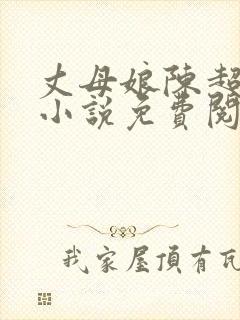 丈母娘陈超
小説免費閱
我家屋頂有瓦